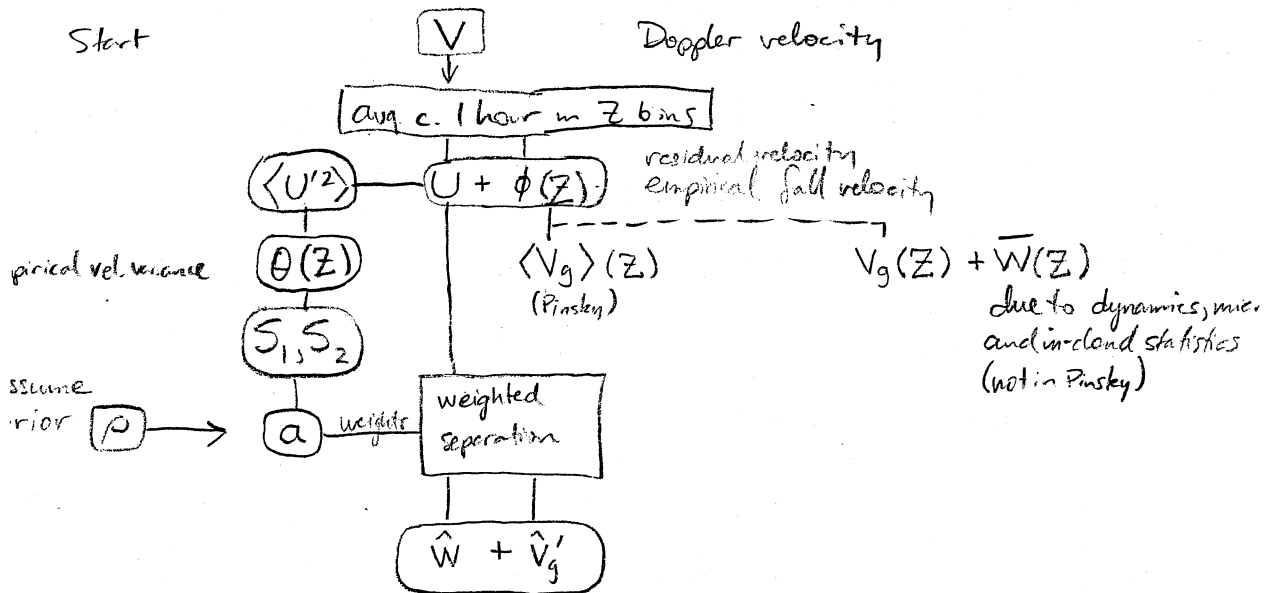 Start
V
Doppler velocity
avg c. 1 hour in Z bins
residual velocity
⟨U'²⟩
U + ϕ(Z)
empirical fall velocity
pirical vel. variance
θ(Z)
⟨Vg⟩(Z)
(Pinsky)
Vg(Z) + W̅(Z)
due to dynamics, mic.
and in-cloud statistics
(not in Pinsky)
S₁, S₂
ssume
rior
ρ
a
weights
weighted
separation
Ŵ + V̂g'